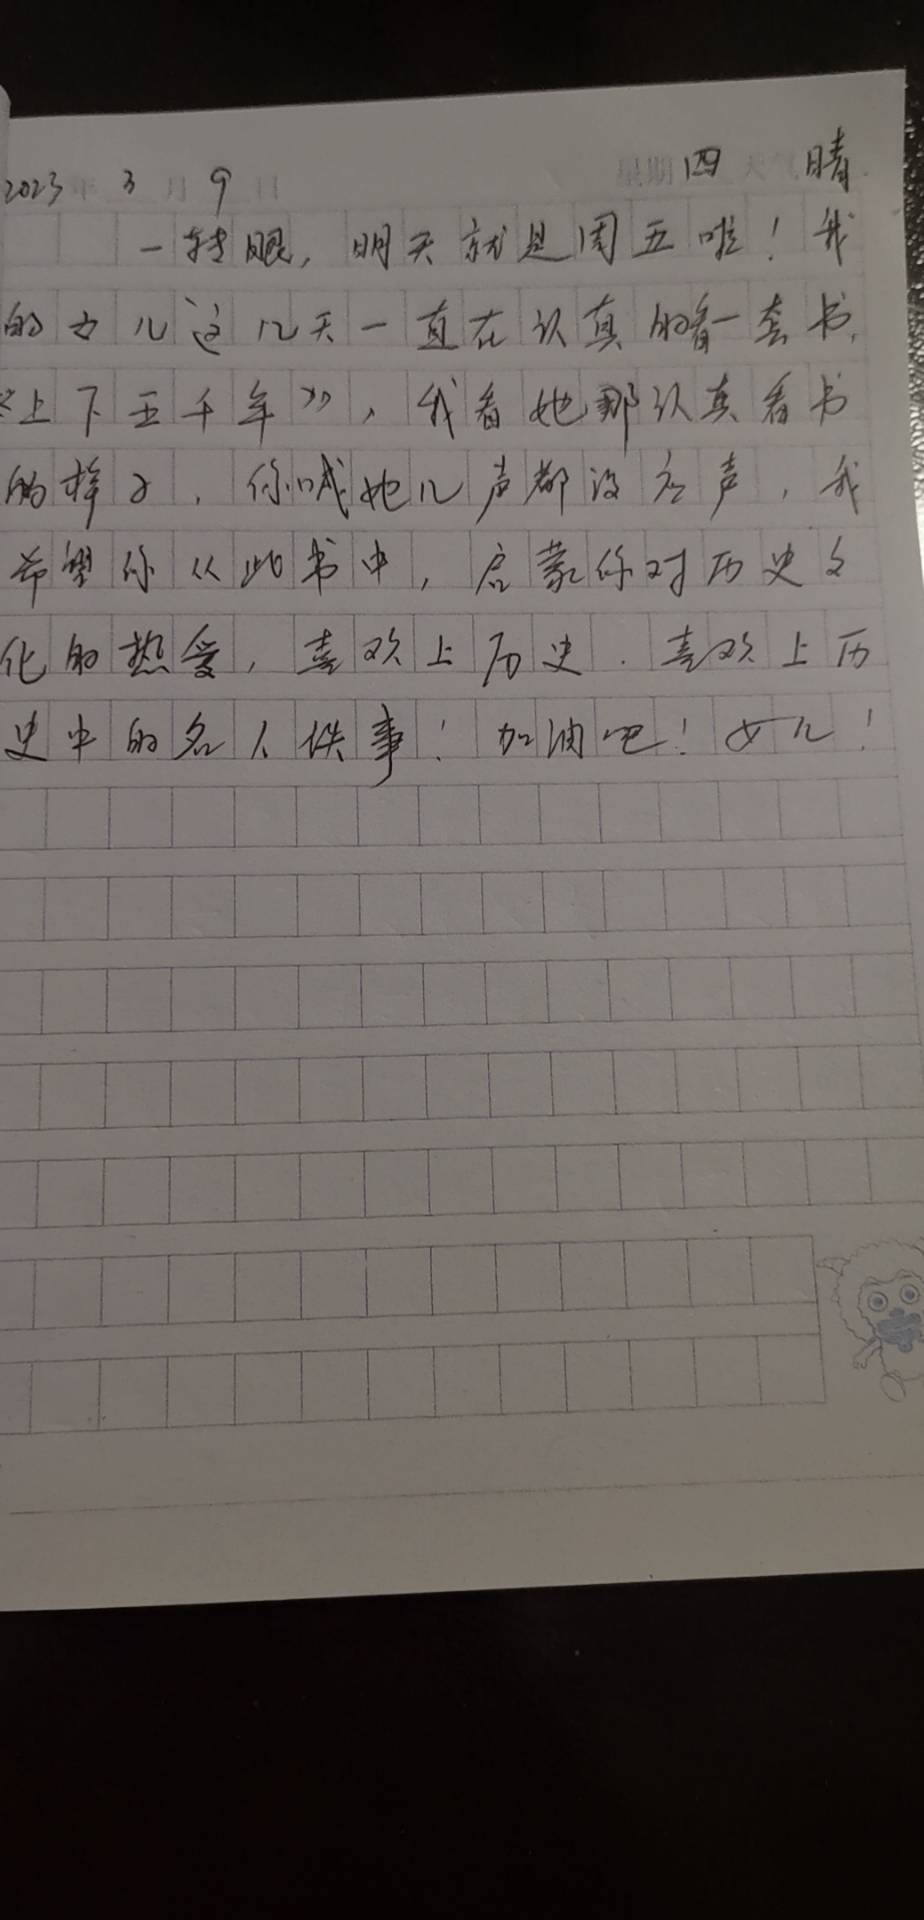 2023年3月9日 星期四 天气晴
一转眼，明天就是周五啦！我
的女儿这几天一直在认真的看一套书，
《上下五千年》，我看她那认真看书
的样子，你喊她几声都没应声，我
希望你从此书中，启蒙你对历史文
化的热爱，喜欢上历史．喜欢上历
史中的名人佚事！加油吧！女儿！